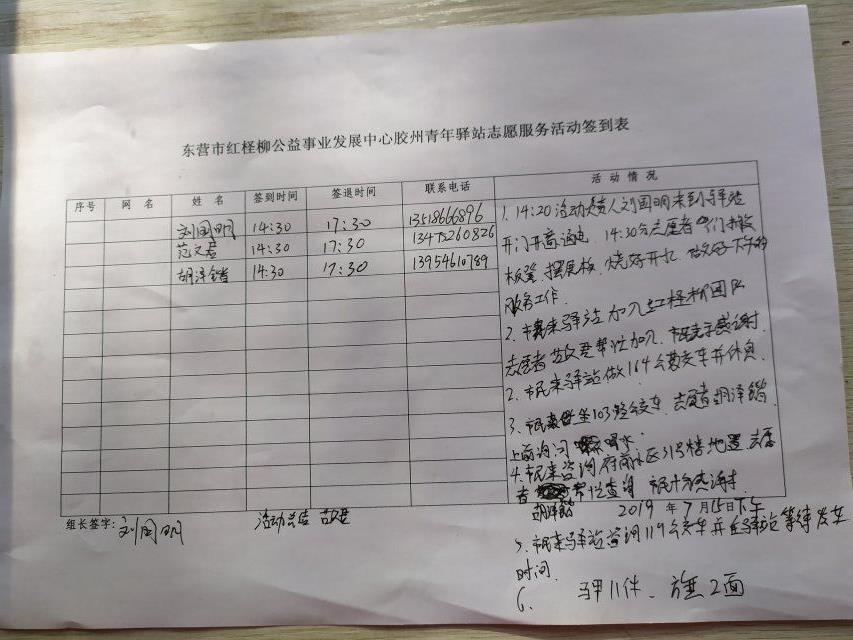 东营市红柽柳公益事业发展中心胶州青年驿站志愿服务活动签到表
序号 网名 姓名 签到时间 签退时间 联系电话 活动情况
刘国明 14:30 17:30 13518666896
范文君 14:30 17:30 13475260826
胡泽锴 14:30 17:30 13954610789
1. 14:20活动负责人刘国明来到驿站
开门开窗通电 14:30分志愿者们搬
板凳、摆展板、烧好开水 做好下午的
服务工作.
2. 市民来驿站加入红柽柳团队
志愿者 帮忙加入 市民表示感谢.
2. 市民来驿站做164公交车并休息.
3. 市民 坐103路公交车 志愿者胡泽锴
上前询问 喝水
4. 市民来咨询府前小区31号楼地置 志愿
者 帮忙查询 市民十分感谢.
胡泽锴 2019年7月15日下午
5. 市民来驿站咨询119公交车并在驿站等待发车
时间.
6. 马甲11件、旗2面
组长签字: 刘国明 活动总结